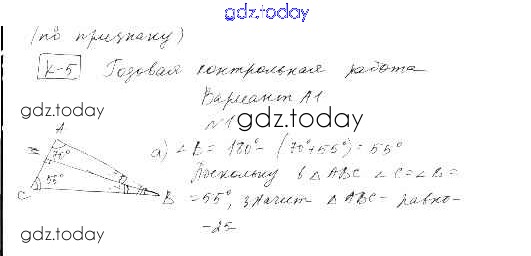 gdz.today
(по признаку)
К-5 Годовая контрольная работа
gdz.today
Вариант А1
№1
gdz.today
A
70°
55°
C
B
а) ∠B = 180° - (70°+55°) = 55°
Поскольку в △ABC ∠C = ∠B =
= 55°, значит △ABC - равно-
-25
gdz.today